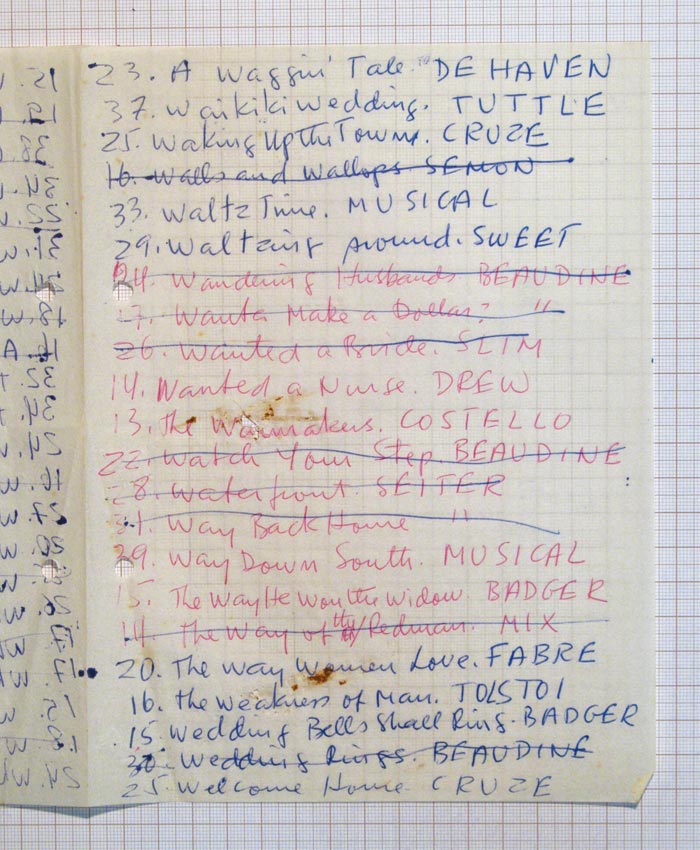 23. A Waggin' Tale. DE HAVEN
37. Waikiki Wedding. TUTTLE
25. Waking Up the Town. CRUZE
16. Walls and Wallops SEMON
33. Waltz Time. MUSICAL
29. Waltzing around. SWEET
24. Wandering Husbands. BEAUDINE
17. Wanta Make a Dollar? "
26. Wanted a Bride. SLIM
14. Wanted a Nurse. DREW
13. The Warmakers. COSTELLO
22. Watch Your Step. BEAUDINE
28. Waterfront. SEITER
31. Way Back Home "
39. Way Down South. MUSICAL
15. The Way He Won the Widow. BADGER
14. The Way of the Redman. MIX
20. The Way Women Love. FABRE
16. The Weakness of Man. TOLSTOI
15. Wedding Bells Shall Ring. BADGER
30. Wedding Rings. BEAUDINE
25. Welcome Home CRUZE